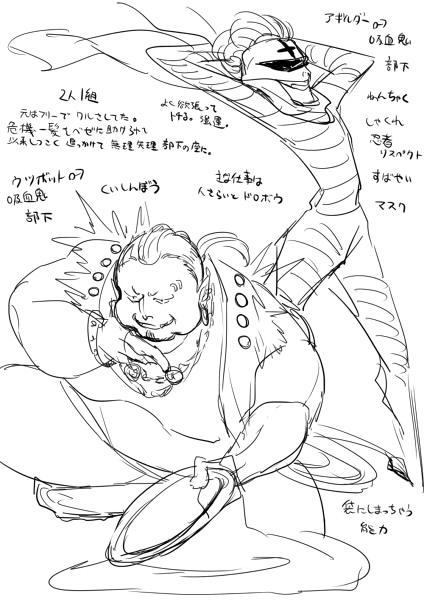 アギルダーロフ
吸血鬼
部下
わんちゃく
しゃくれ
忍者
リスペクト
すばやい
マスク
よく欲張って
トチる。悪運。
2人1組
元はフリーで ワルさしてた。
危機一髪をベゼに助けられて
以来しつこく追っかけて 無理矢理 部下の座に。
ウツボットロフ
吸血鬼
部下
くいしんぼう
主な仕事は
人さらいとドロボウ
袋にしまっちゃう
能力